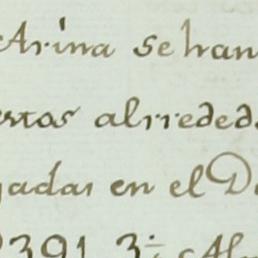 Arina se han
ertas alrreded
gadas en el D
2391. 3